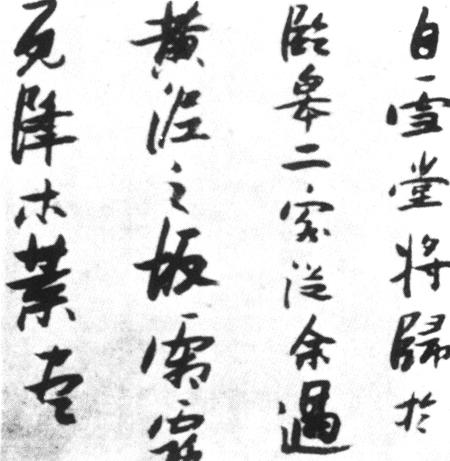 自雪堂將歸於
臨皋二客從余過
黃泥之坂霜露
既降木葉盡